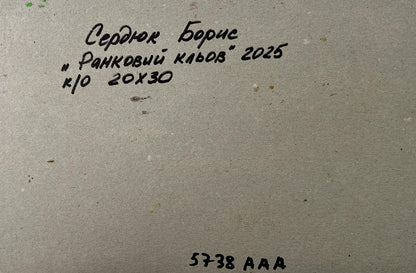 Сердюк Борис
„Ранковий кльов" 2025
к/о 20х30
5738 ААА